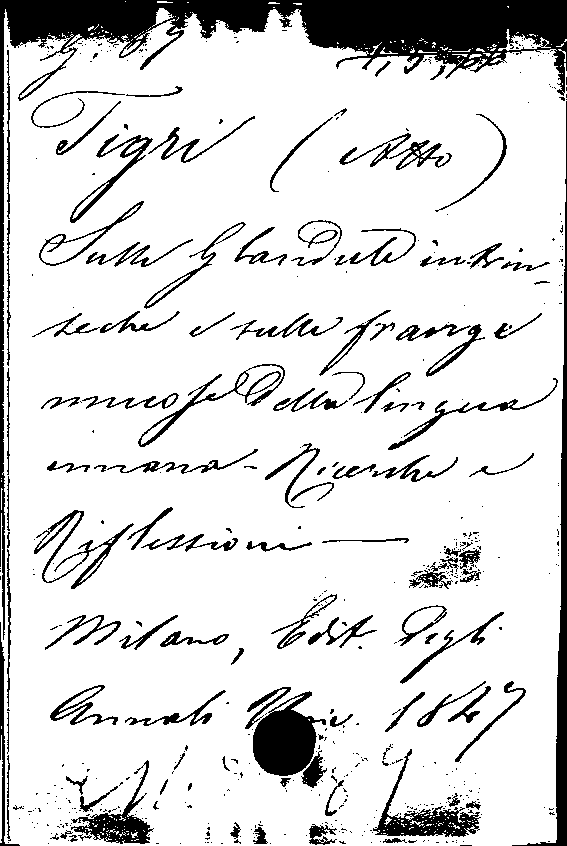 G. 69
Tigri (Atto)
Sulle Glandule intrin-
seche e sulle frange
mucose della lingua
umana - Ricerche e
Riflessioni —
Milano, Edit. Degli
Annali Univ. 1847